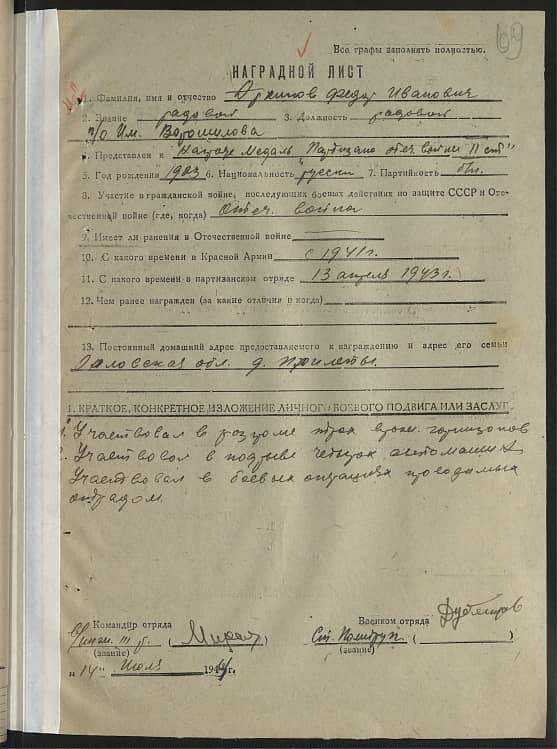 69
Все графы заполнять полностью.
НАГРАДНОЙ ЛИСТ
1. Фамилия, имя и отчество Архипов Федор Иванович
2. Звание рядовой 3. Должность рядовой
п/о Им. Ворошилова
4. Представлен к Награде медаль "Партизану отеч. войны II ст"
5. Год рождения 1903 6. Национальность русский 7. Партийность б/п.
8. Участие в гражданской войне, последующих боевых действиях по защите СССР и Оте-
чественной войне (где, когда) Отеч. война
9. Имеет ли ранения в Отечественной войне
10. С какого времени в Красной Армии с 1941 г.
11. С какого времени в партизанском отряде 13 апреля 1943 г.
12. Чем ранее награжден (за какие отличия и когда)
13. Постоянный домашний адрес предоставляемого к награждению и адрес его семьи
обл. д.
1. КРАТКОЕ, КОНКРЕТНОЕ ИЗЛОЖЕНИЕ ЛИЧНОГО БОЕВОГО ПОДВИГА ИЛИ ЗАСЛУГ
1. Участвовал в разгроме трех враж. гарнизонов
2. Участвовал в подрыве четырех автомашин
Участвовал в боевых операциях проводимых
отрядом.
Командир отряда Военком отряда
(звание) (звание)
"14" Июля 1944 г.